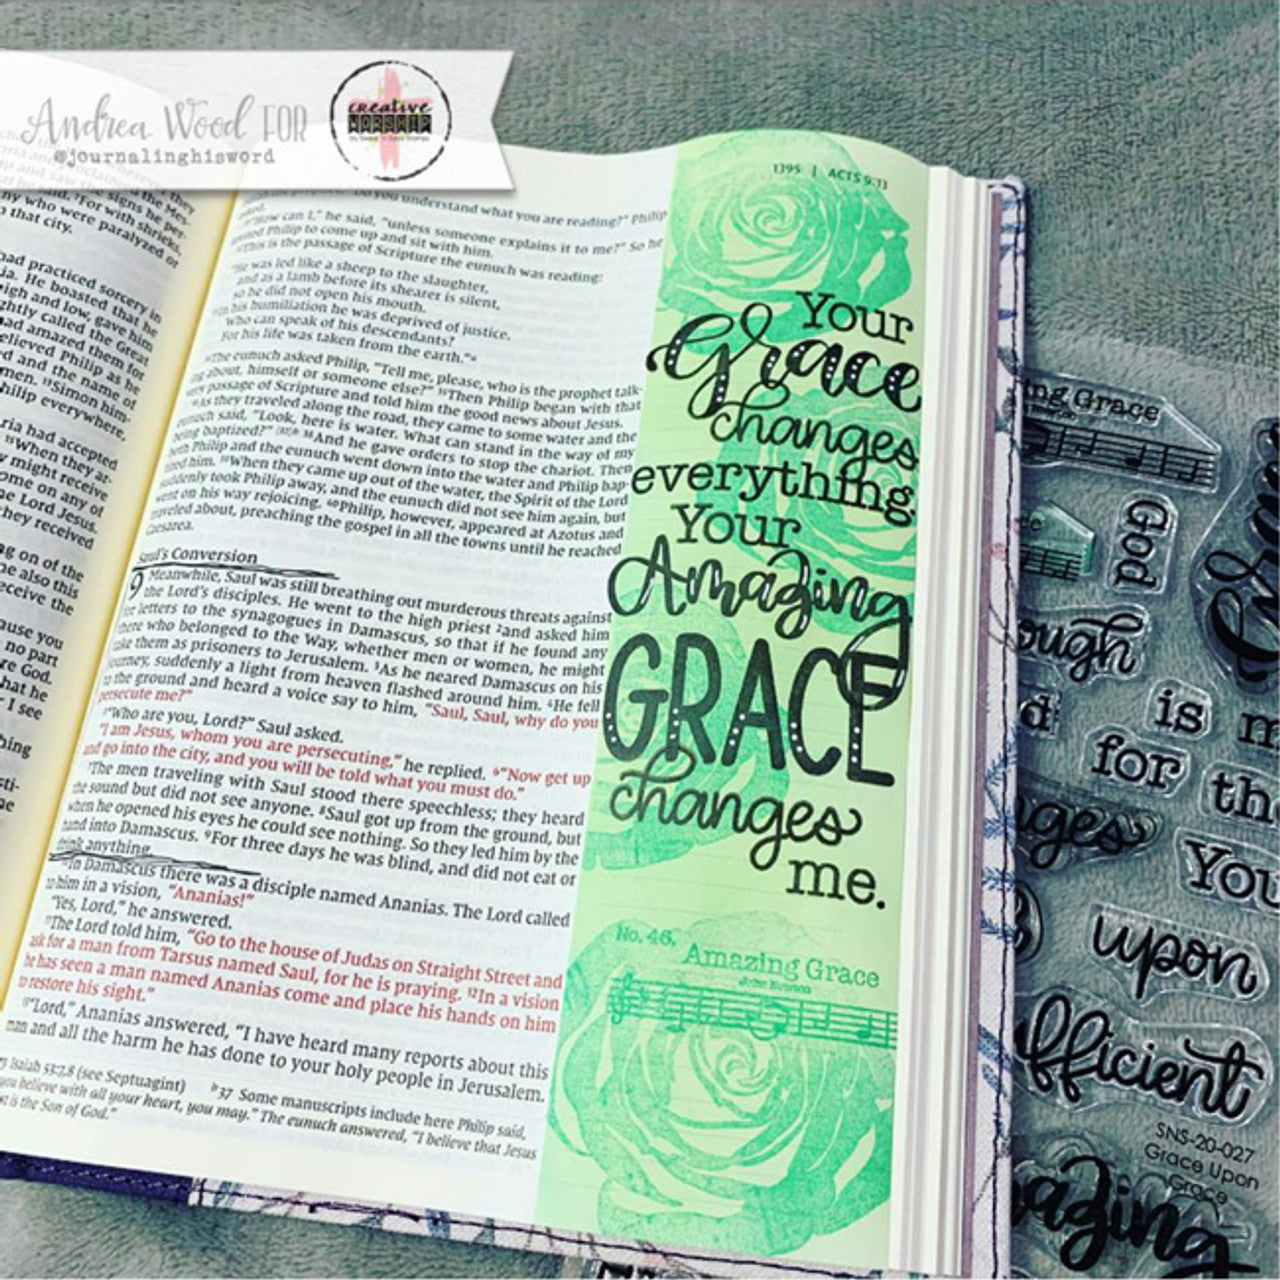 Andrea Wood FOR
@journalinghisword
creative
WORSHIP
and saw the signs he per-
said. ⁷For with shrieks,
ny who were paralyzed or
n that city.
had practiced sorcery in
ia. He boasted that he
igh and low, gave him
ghtly called the Great
had amazed them for
elieved Philip as he
d and the name of
men. ¹³Simon him-
hilip everywhere,
ria had accepted
¹⁵When they ar-
y might receive
ome on any of
he Lord Jesus.
they received
ng on of the
ne also this
eceive the
ause you
no part
re God.
hat he
I see
hing
1395 | ACTS 9:13
Do you understand what you are reading?" Philip
asked.
"How can I," he said, "unless someone explains it to me?" So he
invited Philip to come up and sit with him.
This is the passage of Scripture the eunuch was reading:
"He was led like a sheep to the slaughter,
and as a lamb before its shearer is silent,
so he did not open his mouth.
In his humiliation he was deprived of justice.
Who can speak of his descendants?
For his life was taken from the earth."
The eunuch asked Philip, "Tell me, please, who is the prophet talk-
ing about, himself or someone else?" ³⁵Then Philip began with that
very passage of Scripture and told him the good news about Jesus.
As they traveled along the road, they came to some water and the
eunuch said, "Look, here is water. What can stand in the way of my
being baptized?" ³⁸And he gave orders to stop the chariot. Then
both Philip and the eunuch went down into the water and Philip bap-
tized him. ³⁹When they came up out of the water, the Spirit of the Lord
suddenly took Philip away, and the eunuch did not see him again, but
went on his way rejoicing. ⁴⁰Philip, however, appeared at Azotus and
traveled about, preaching the gospel in all the towns until he reached
Caesarea.
Saul's Conversion
9 Meanwhile, Saul was still breathing out murderous threats against
the Lord's disciples. He went to the high priest ²and asked him
for letters to the synagogues in Damascus, so that if he found any
there who belonged to the Way, whether men or women, he might
take them as prisoners to Jerusalem. ³As he neared Damascus on his
journey, suddenly a light from heaven flashed around him. ⁴He fell
to the ground and heard a voice say to him, "Saul, Saul, why do you
persecute me?"
⁵"Who are you, Lord?" Saul asked.
"I am Jesus, whom you are persecuting," he replied. ⁶"Now get up
and go into the city, and you will be told what you must do."
⁷The men traveling with Saul stood there speechless; they heard
the sound but did not see anyone. ⁸Saul got up from the ground, but
when he opened his eyes he could see nothing. So they led him by the
hand into Damascus. ⁹For three days he was blind, and did not eat or
drink anything.
¹⁰In Damascus there was a disciple named Ananias. The Lord called
to him in a vision, "Ananias!"
"Yes, Lord," he answered.
¹¹The Lord told him, "Go to the house of Judas on Straight Street and
ask for a man from Tarsus named Saul, for he is praying. ¹²In a vision
he has seen a man named Ananias come and place his hands on him
to restore his sight."
¹³"Lord," Ananias answered, "I have heard many reports about this
man and all the harm he has done to your holy people in Jerusalem.
Isaiah 53:7,8 (see Septuagint) ᵇ 37 Some manuscripts include here Philip said,
you believe with all your heart, you may." The eunuch answered, "I believe that Jesus
st is the Son of God."
Your
Grace
changes
everything.
Your
Amazing
GRACE
changes
me.
No. 46.
Amazing Grace
John Newton
ng Grace
God
ough
is m
for the
nges
You
upon
fficient
SNS-20-027
Grace Upon
Grace
azing